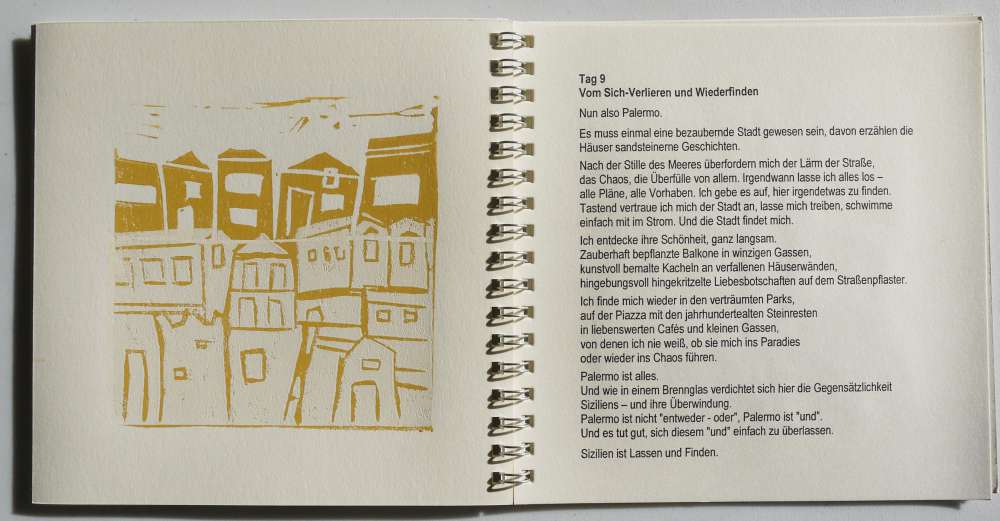 Tag 9
Vom Sich-Verlieren und Wiederfinden
Nun also Palermo.
Es muss einmal eine bezaubernde Stadt gewesen sein, davon erzählen die
Häuser sandsteinerne Geschichten.
Nach der Stille des Meeres überfordern mich der Lärm der Straße,
das Chaos, die Überfülle von allem. Irgendwann lasse ich alles los –
alle Pläne, alle Vorhaben. Ich gebe es auf, hier irgendetwas zu finden.
Tastend vertraue ich mich der Stadt an, lasse mich treiben, schwimme
einfach mit im Strom. Und die Stadt findet mich.
Ich entdecke ihre Schönheit, ganz langsam.
Zauberhaft bepflanzte Balkone in winzigen Gassen,
kunstvoll bemalte Kacheln an verfallenen Häuserwänden,
hingebungsvoll hingekritzelte Liebesbotschaften auf dem Straßenpflaster.
Ich finde mich wieder in den verträumten Parks,
auf der Piazza mit den jahrhundertealten Steinresten
in liebenswerten Cafés und kleinen Gassen,
von denen ich nie weiß, ob sie mich ins Paradies
oder wieder ins Chaos führen.
Palermo ist alles.
Und wie in einem Brennglas verdichtet sich hier die Gegensätzlichkeit
Siziliens – und ihre Überwindung.
Palermo ist nicht "entweder - oder", Palermo ist "und".
Und es tut gut, sich diesem "und" einfach zu überlassen.
Sizilien ist Lassen und Finden.